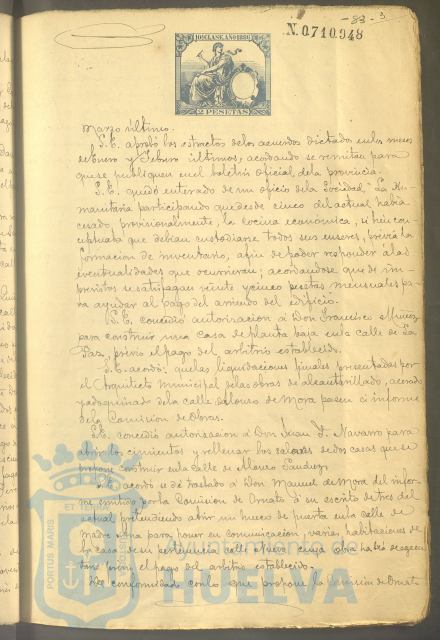 - 83 -
N.0.710.948
10ª CLASE. AÑO 1886
2 PESETAS
Marzo último.
S.E. aprobó los estractos de los acuerdos dictado en los meses
de Enero y Febrero últimos, acordando se remitan para
que se publiquen en el boletin oficial de la provincia.
S.E. quedó enterado de un oficio de la Sociedad "La Hu-
manitaria participando que desde cinco del actual habia
cesado, provisionalmente, la cocina económica, si bien con-
ceptuaba que debian custodiarse todos sus enseres, previa la
formacion de inventario, afin de poder responder á las
eventualidades que ocurrieran; acordandose que de im-
previstos se satisfagan veinte y cinco pesetas mensuales pa-
ra ayudar al pago del arriendo del edificio.
S.E. concedió autorizacion á Don Francisco Muñoz
para construir una casa de planta baja en la calle de La
Paz, previo el pago del arbitrio establecido.
S.E. acordó: que las liquidaciones finales presentadas por
el Arquitecto Municipal de las obras de alcantarillado, acerado
y adoquinado de la calle de Alonso de Mora pasen á informe
de la Comision de Obras.
S.E. concedió autorizacion á Don Juan F. Navarro para
abrir los cimientos y rellenar los solares de dos casas que se
propone construir en la Calle de Alonso Sanchez.
S.E. acordó se dé traslado á Don Manuel de Mora del infor-
me emitido por la Comision de Ornato á su escrito de tres del
actual pretendiendo abrir un hueco de puerta en la calle de
Madre Ana para poner en comunicacion varias habitaciones de
la casa de su pertenencia calle Puerto cuya obra habrá de ejecu-
tarse previo el pago del arbitrio establecido.
De conformidad con lo que propone la Comision de Ornat
PORTUS MARIS
ET TE
Ayuntamiento de
HUELVA